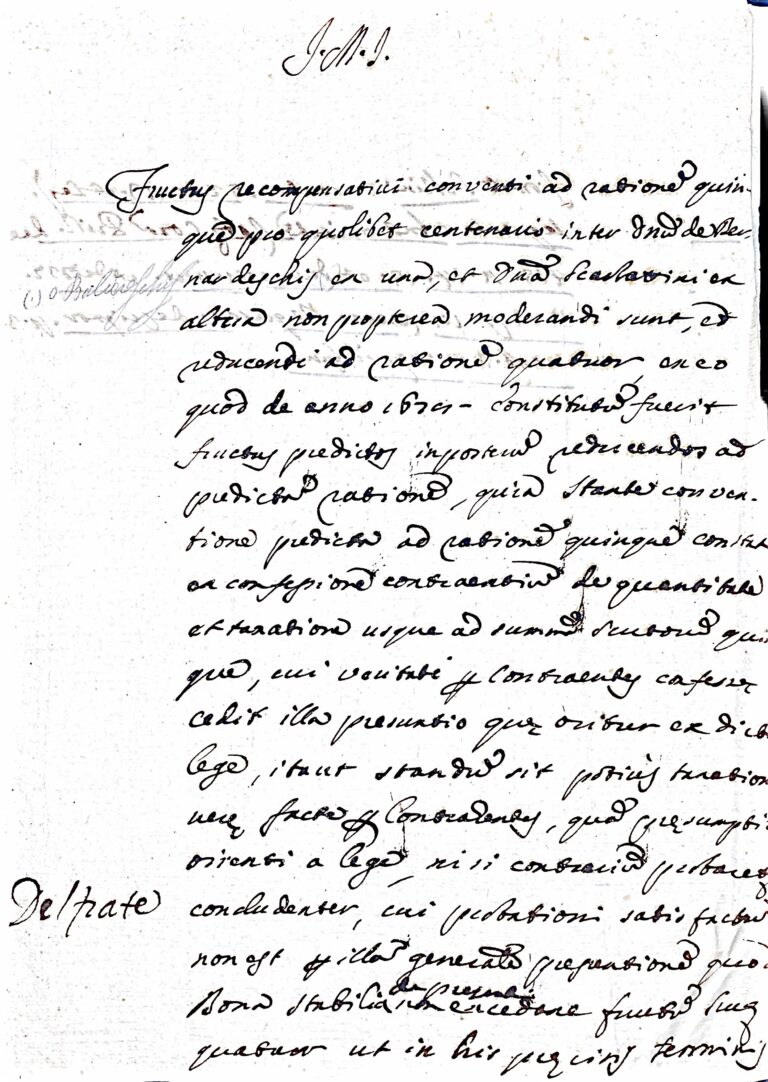 J. M. J.
Fructus recompensativi conventi ad rationẽ quin-
quẽ pro quolibet centenario inter Dnũ de Ber-
nardeschis ex una, et Dnã Scarlattini ex
altera non propterea moderandi sunt, et
reducendi ad rationẽ quatuor, ex eo
quod de anno constitutũ fuerit
fructus predictos inposterũ reducendos ad
predictã rationẽ, quia stante conven-
tione predicta ad rationẽ quinque constat
ex confessione contraentiũ de quantitate
et taxatione usque ad summã scutorũ quin
quẽ, cui veritati ꝑ Contraentes confessę
cedit illa presuntio quę oritur ex dicta
lege, itaut standũ sit potius taxationi
verę factę ꝑ Contraentes, quã pręsumpti
orienti a lege, nisi contrariũ probaret
Del frate
concludenter, cui probationi satis factũ
non est ꝑ illã generalẽ presentionẽ quod
Bona stabilia non excedant fructũ
quatuor ut in his pręcisis terminis